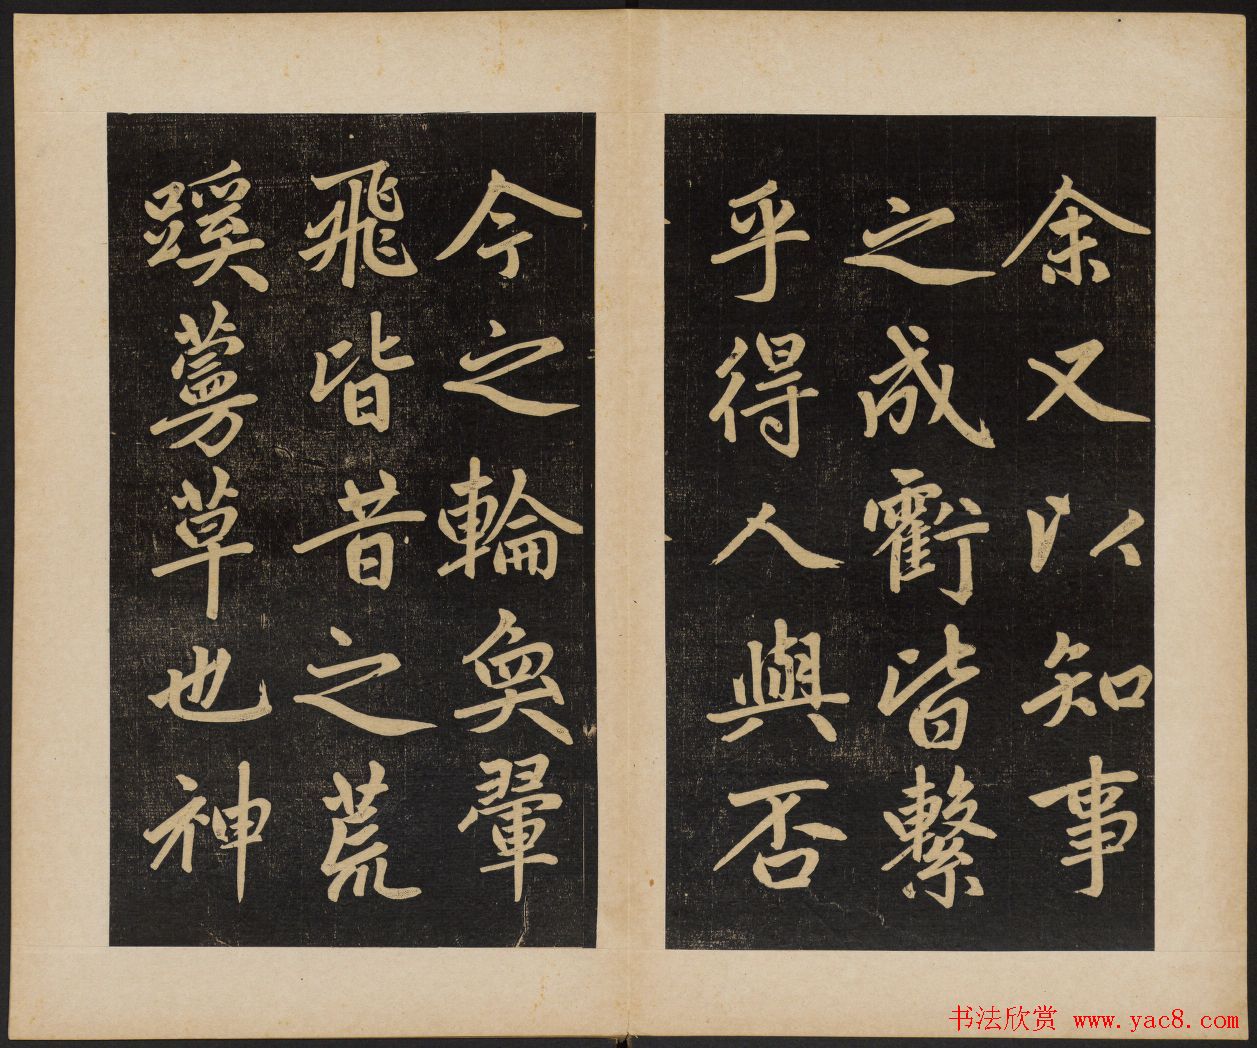 余又以知事
之成虧皆繫
乎得人與否
今之輪奐翬
飛皆昔之荒
蹊蔓草也神
书法欣赏 www.yac8.com